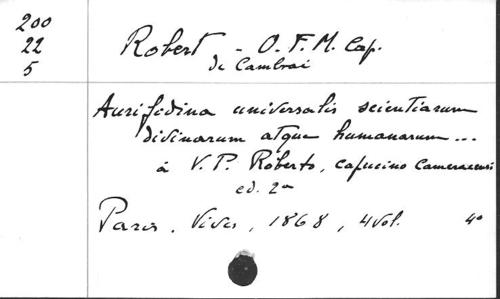 200
22
5
Robert - O. F. M. Cap.
de Cambrai
Aurifodina universalis scientiarum
divinarum atque humanarum ...
à V. P. Roberto, capucino Cameracensi
ed. 2a
Paris, Vivès, 1868, 4 vol. 4°